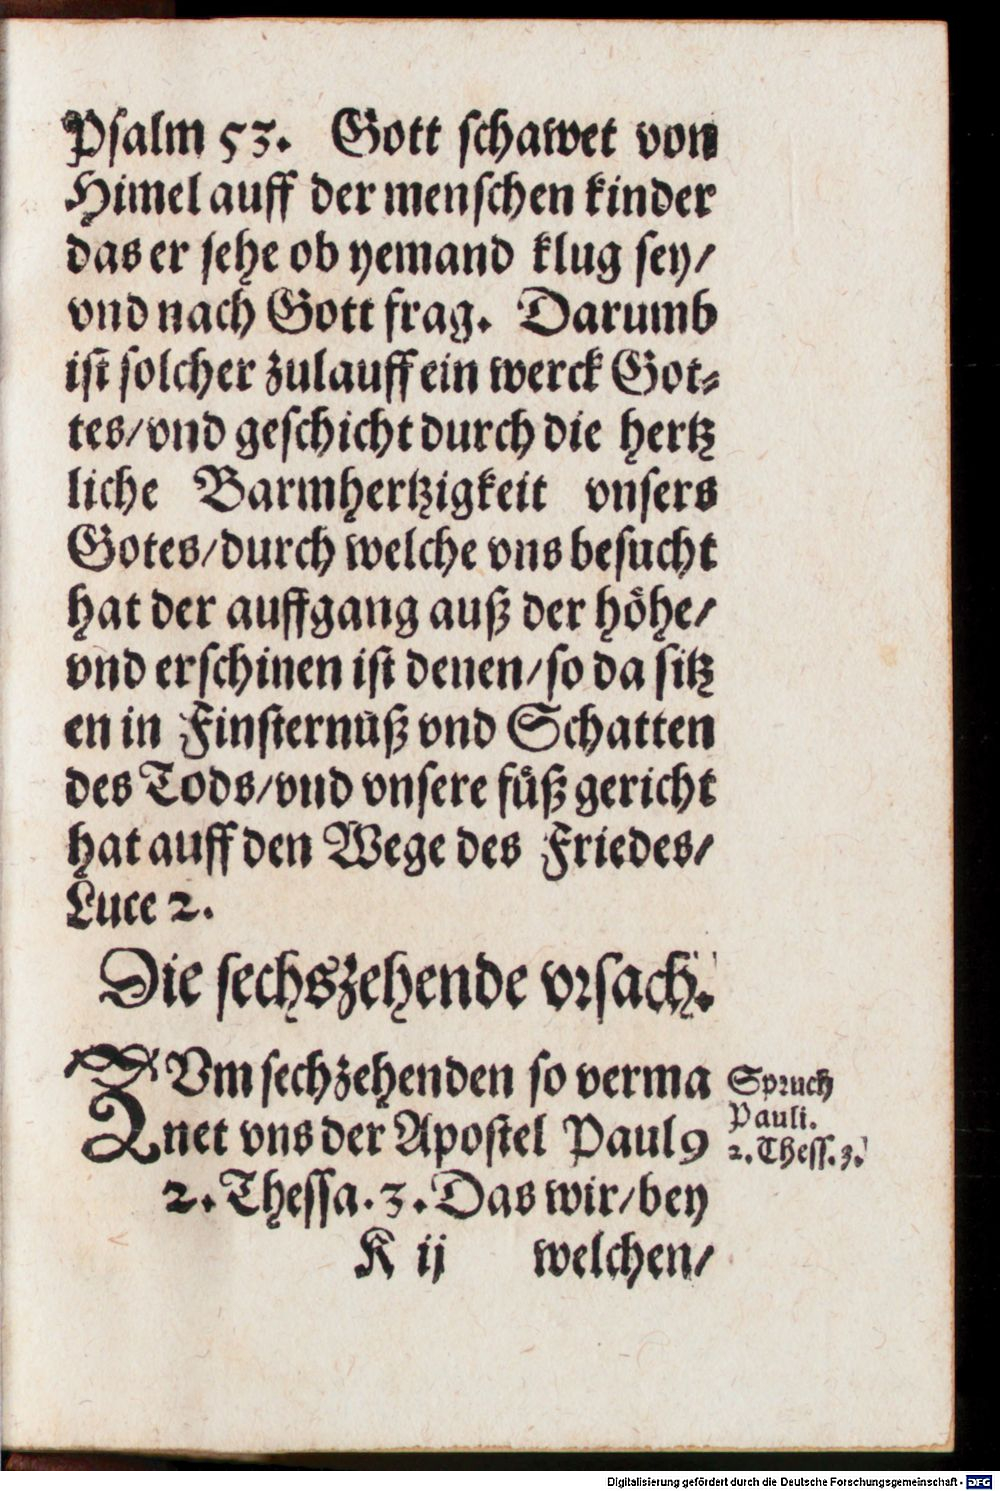 Psalm 53. Gott schawet von
Himel auff der menschen kinder
das er sehe ob yemand klug sey/
vnd nach Gott frag. Darumb
ist solcher zulauff ein werck Got⸗
tes/vnd geschicht durch die hertz
liche Barmhertzigkeit vnsers
Gotes/durch welche vns besucht
hat der auffgang auß der höhe/
vnd erschinen ist denen/so da sitz
en in Finsternuß vnd Schatten
des Tods/vnd vnsere füß gericht
hat auff den Wege des Friedes/
Luce 2.
Die sechszehende vrsach.
ZVm sechzehenden so verma
net vns der Apostel Paulꝰ
2. Thessa. 3. Das wir/bey
Spruch
Pauli.
2. Thess. 3.
K ij welchen/
Digitalisierung gefördert durch die Deutsche Forschungsgemeinschaft - DFG